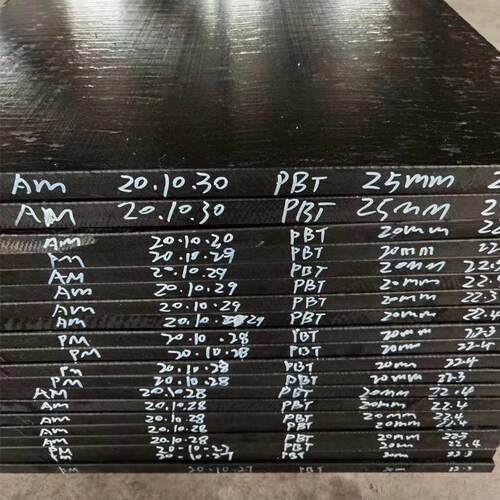 AM 20.10.30 PBT 25mm 2
AM 20.10.30 PBT 25mm 2
AM 20.10.30 PBT 20mm
PM 20.10.29 PBT 20mm 22
AM 20.10.29 PBT 20mm 22.
AM 20.10.29 PBT 20mm 22.3
AM 20.10.29 PBT 20mm 22.3
AM 20.10. 29 PBT 20mm 22.4
PM 20.10.28 PBT 20mm 22.3
PM 20.10.28 PBT 20mm 22.4
PM 20.10.28 PBT 20mm 22.4
PM 20.10.28 PBT 20mm 22.3
AM 20.10.28 PBT 20mm 22.4
AM 20.10.28 PBT 20mm 22.4
AM 20.10.28 PBT 20mm 22.4
AM 20.10.28 PBT 20mm 22.4
AM 20.10.28 PBT 20mm 22.3
PM 20.10.27 PBT 20mm 22.4
PM 20.10.27 PBT 20mm 22.3
AM 20.10.27 PBT 20mm 22.3